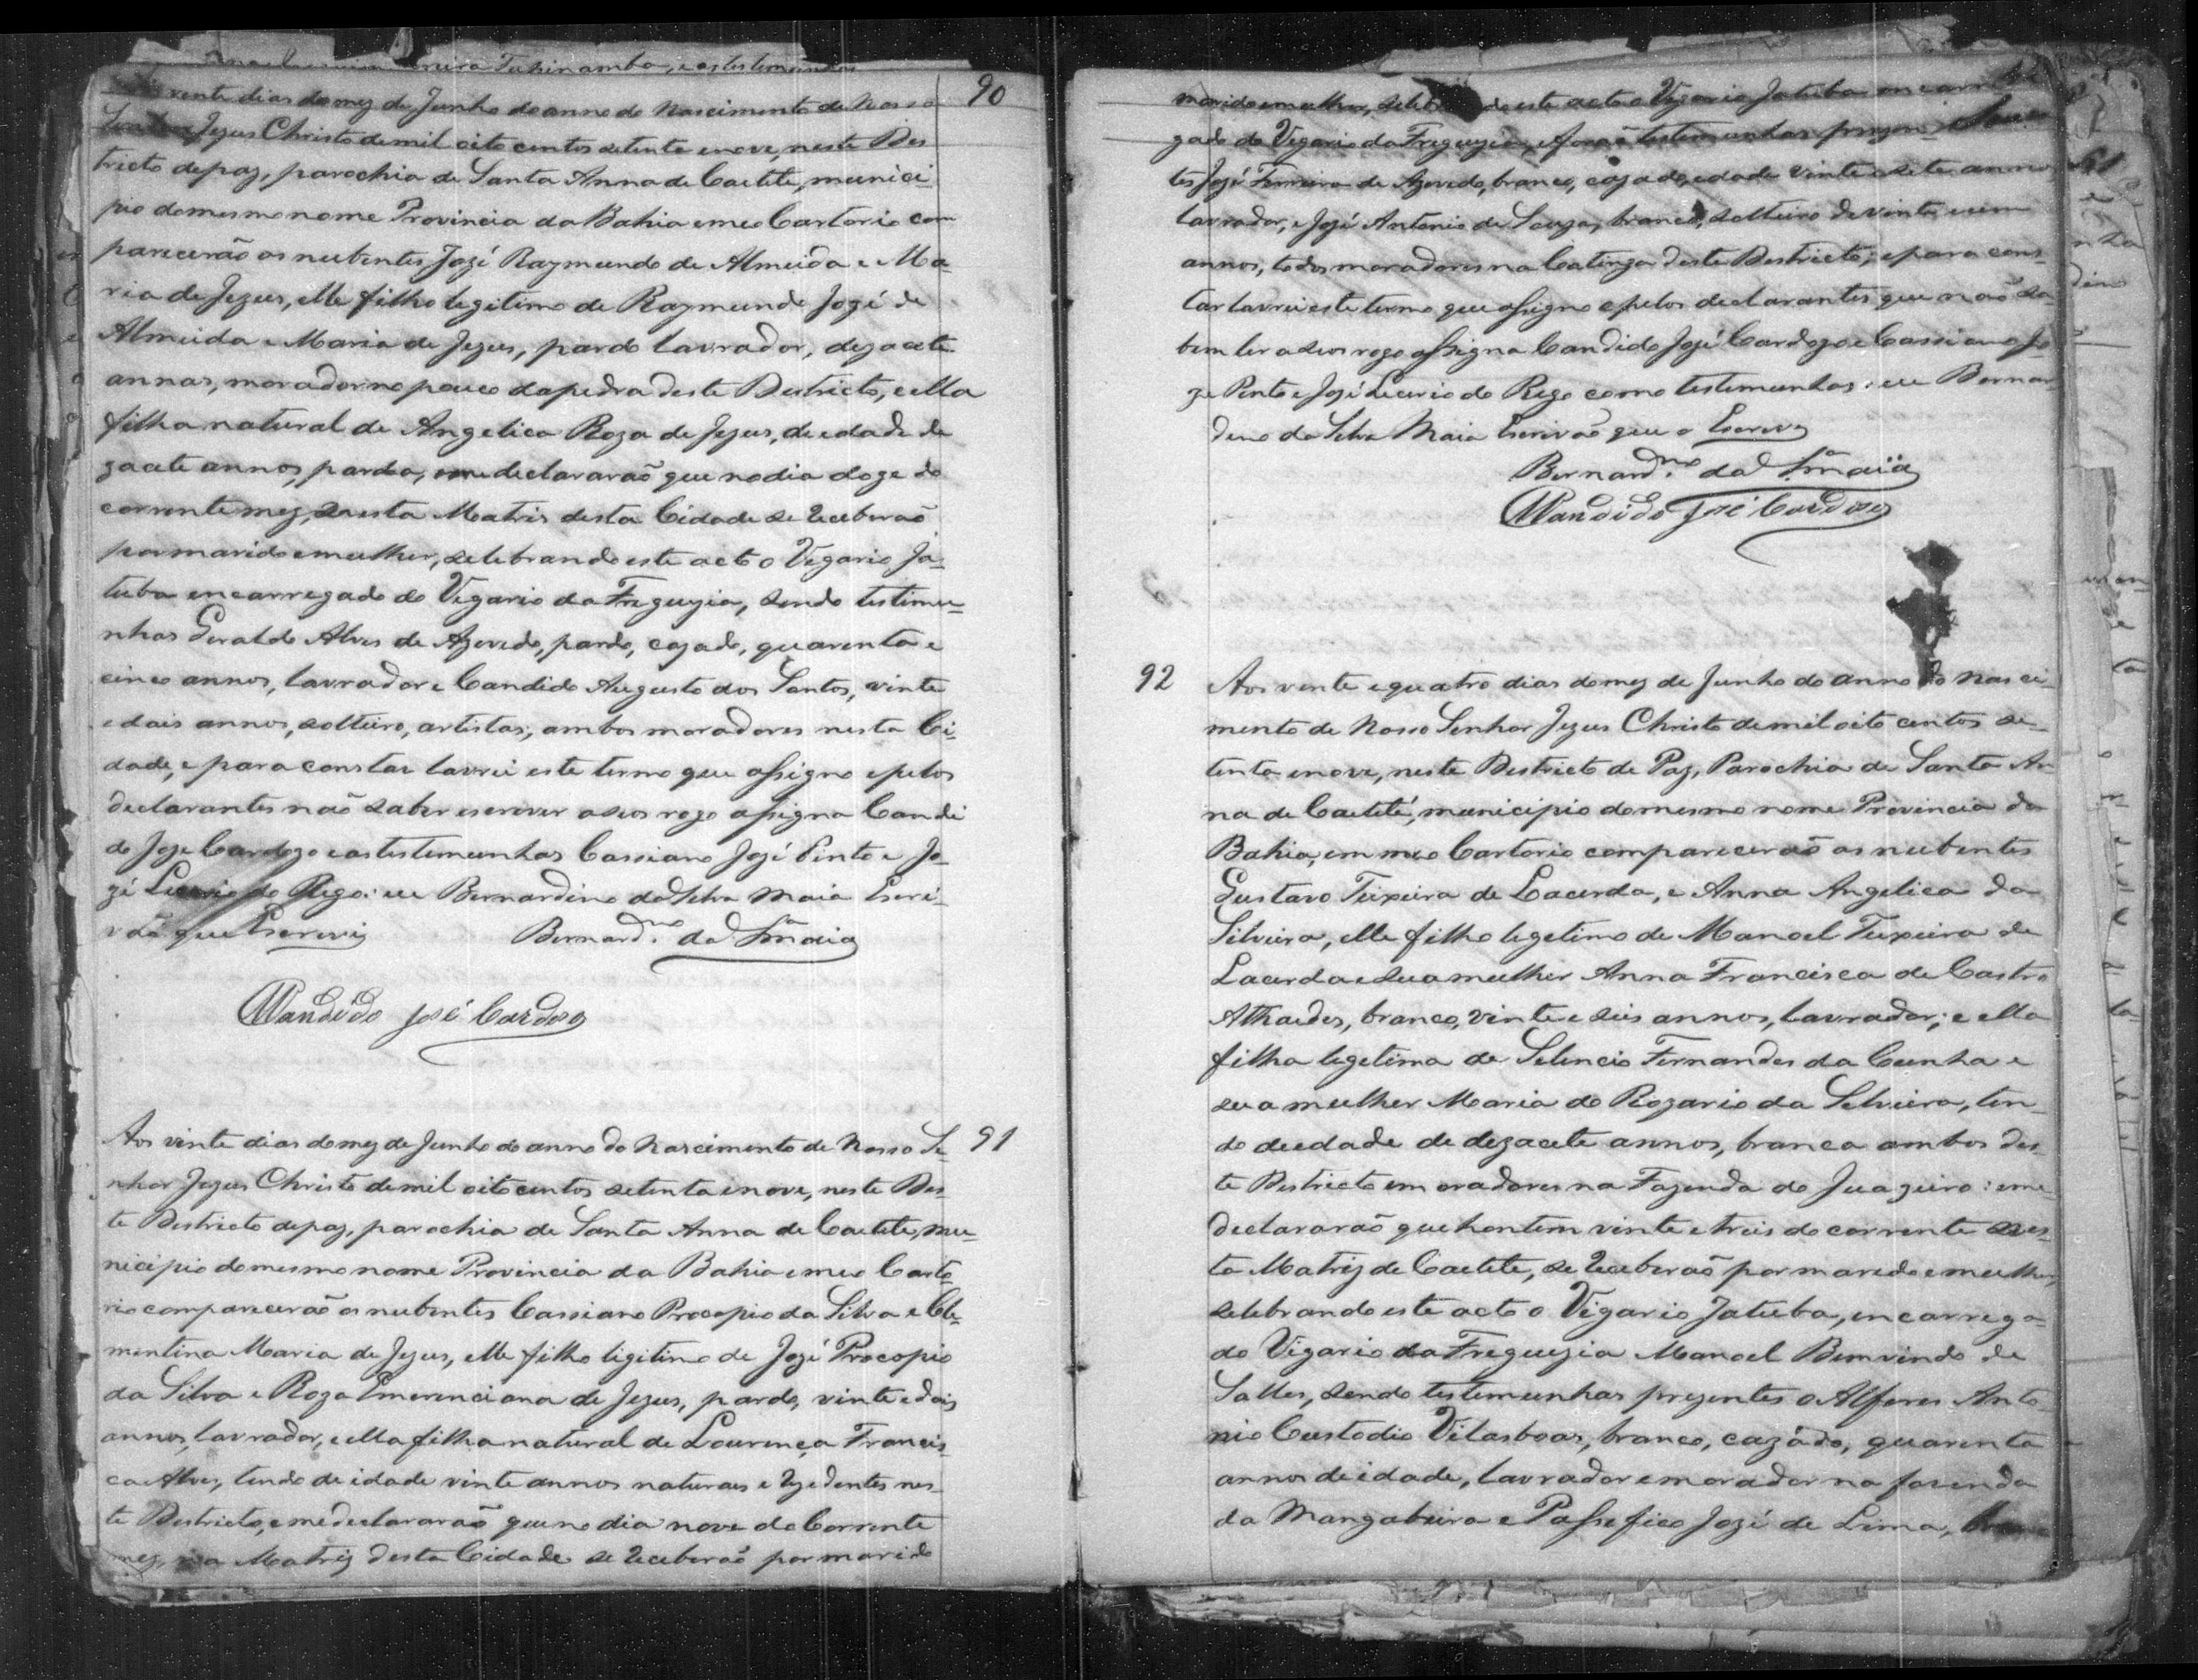 Tupinamba, e as testemunhas
90
vente dias do mez de Junho do anno do Nascimento de Nosso
Jezus Christo de mil oito centos setenta e nove, neste Des
tricto de paz, parochia de Santa Anna de Caetité, munici-
pio do mesmo nome Provincia da Bahia em eo Cartorio com
parecerão os nubentes Jozé Raymundo de Almeida e Ma-
ria de Jezus, elle filho legitimo de Raymundo Jozé de
Almeida e Maria de Jezus, pardo lavrador, dezacete
annos, morador no da pedra deste Destricto, e ella
filha natural de Angelica Roza de Jezus, de edade de
zacete annos, parda, e me declararão que no dia doze do
corrente mez, Matris desta Cidade se receberão
por marido e mulher, selebrando este acto o Vigario Ja-
tuba encarregado do Vigario da Freguezia, sendo testemu-
nhas Geraldo Alves de Azevedo, pardo, cazado, quarenta e
cinco annos, lavrador e Candido Augusto dos Santos, vinte
e dois annos, solteiro, artistas; ambos moradores nesta Ci-
dade, e para constar lavrei este termo que assigno e pelos
declarantes não saber escrever a seos rogo assigna Candi
do Joze Cardozo e as testemunhas Cassiano Jozé Pinto e Jo-
zé do Rego: eu Bernardino da Silva Maia Escri-
vão que Escrevi Bernard.no da S.a Maia
Candido José Cardozo
Aos vinte dias do mez de Junho do anno do Nascimento de Nosso Se- 91
nhor Jezus Christo de mil oito centos setenta e nove, neste Des-
te Destricto de paz, parochia de Santa Anna de Caetité, mu-
nicipio do mesmo nome Provincia da Bahia em eo Carto-
rio comparecerão os nubentes Cassiano Procopio da Silva e Cle-
mentina Maria de Jezus, elle filho ligitimo de Jozé Procopio
da Silva e Roza Emerenciana de Jezus, pardo, vinte e dois
annos, lavrador, e ella filha natural de Lourença Francis-
ca Alves, tendo de idade vinte annos naturaes e rezedentes nes-
te Destricto, e me declararão que no dia nove do Corrente
mez, na Matriz desta Cidade se receberão por marido
marido e mulher, deste acto o Vigario Jatuba encarre
gado do Vigario da Freguezia, e forão testemunhas prezen-
tes Jozé Ferreira de Azevedo, branco, cazado, edade vinte e sete annos
lavrador, e Jozé Antonio de Souza, branco, solteiro de vinte e um
annos, todos moradores na Catinga deste Destricto; e para cons-
tar lavrei este termo que assigno e pelos declarantes que não sa-
bem ler a seos rogo assigna Candido Jozé Cardozo e Cassiano Jo-
ze Pinto e Jozé do Rego como testemunhas: eu Bernar
dino da Silva Maia Escrivão que o Escrevy
Bernard.no da S.a Maia
Candido José Cardozo
92 Aos vente e quatro dias do mez de Junho do anno do Nasci-
mento de Nosso Senhor Jezus Christo de mil oito centos se-
tenta e nove, neste Destricto de Paz, Parochia de Santa An-
na de Caetité, municipio do mesmo nome Provincia da
Bahia, em meo Cartorio comparecerão os nubentes
Gustavo Teixeira de Lacerda, e Anna Angelica da
Silveira, elle filho legetimo de Manoel Teixeira de
Lacerda e sua mulher Anna Francisca de Castro
Athaedes, branco, vinte e seis annos, lavrador; e ella
filha legetima de Selencio Fernandes da Cunha e
sua mulher Maria do Rozario da Silveira, ten-
do de edade de dezacete annos, branca ambos des-
te Destricto e moradores na Fazenda do Juazeiro: e me
declararão que hontem vinte e treis do corrente nes-
ta Matriz de Caetite, se receberão por marido e mulher,
selebrando este acto o Vigario Jatuba, encarrega-
do Vigario da Freguezia Manoel Bemvindo de
Salles, sendo testemunhas prezentes o Alferes Anto-
nio Custodio Vilasboas, branco, cazádo, quarenta
annos de idade, lavrador e morador na fazenda
da Mangabeira e Passefico Jozé de Lima,